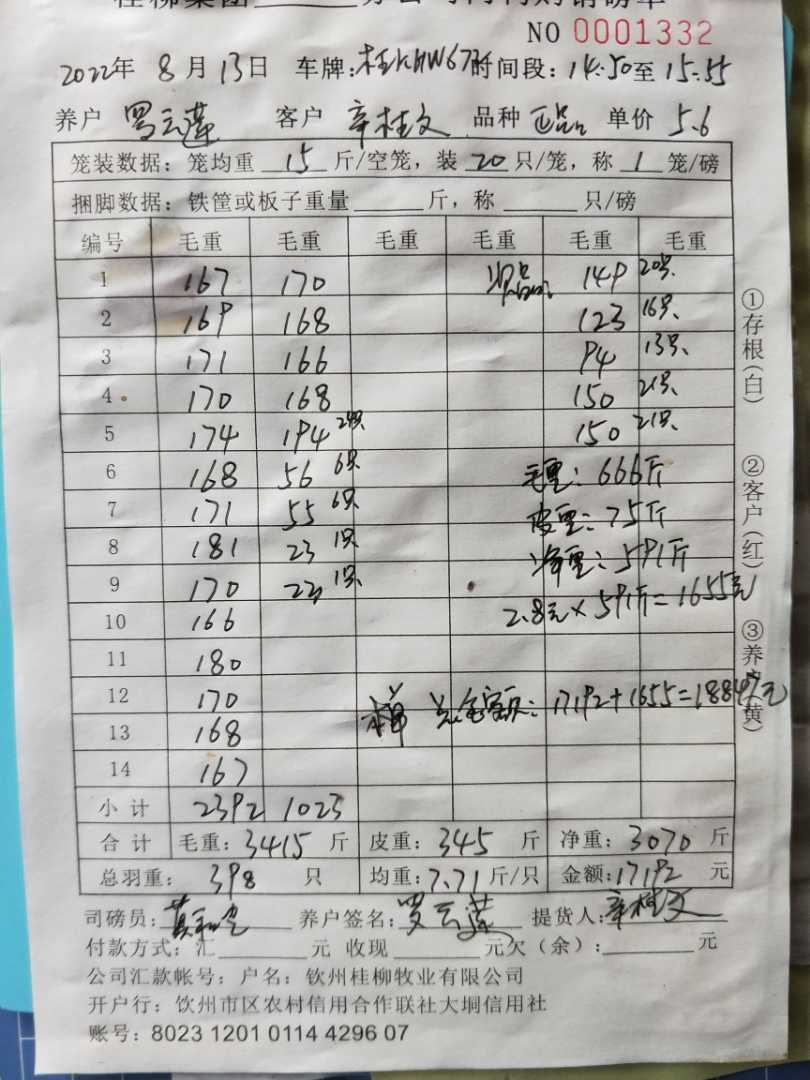 桂柳集团 分公司肉鸭购销磅单
NO 0001332
2022年 8月 13日 车牌:桂KHW67 时间段:14:50至15:55
养户 罗云莲 客户 辛桂文 品种 正品 单价 5.6
笼装数据:笼均重 15 斤/空笼,装 20 只/笼,称 1 笼/磅
捆脚数据:铁筐或板子重量 斤,称 只/磅
编号 毛重 毛重 毛重 毛重 毛重 毛重
1 167 170 次品 149 20只
2 169 168 123 16只
3 171 166 94 13只
4 170 168 150 21只
5 174 194 150 21只
6 168 56 6只 毛重:666斤
7 171 55 6只 皮重:75斤
8 181 23 1只 净重:591斤
9 170 23 1只
10 166 2.8元×591斤=1655元
11 180
12 170 总金额:17192+1655=18847元
13 168
14 167
小计 2392 1023
合计 毛重:3415 斤 皮重:345 斤 净重:3070 斤
总羽重:398 只 均重:7.71斤/只 金额:17192 元
司磅员: 养户签名:罗云莲 提货人:辛桂文
付款方式:汇 元 收现 元欠(余): 元
公司汇款帐号:户名:钦州桂柳牧业有限公司
开户行:钦州市区农村信用合作联社大垌信用社
账号:8023 1201 0114 4296 07
①存根(白)
②客户(红)
③养户(黄)